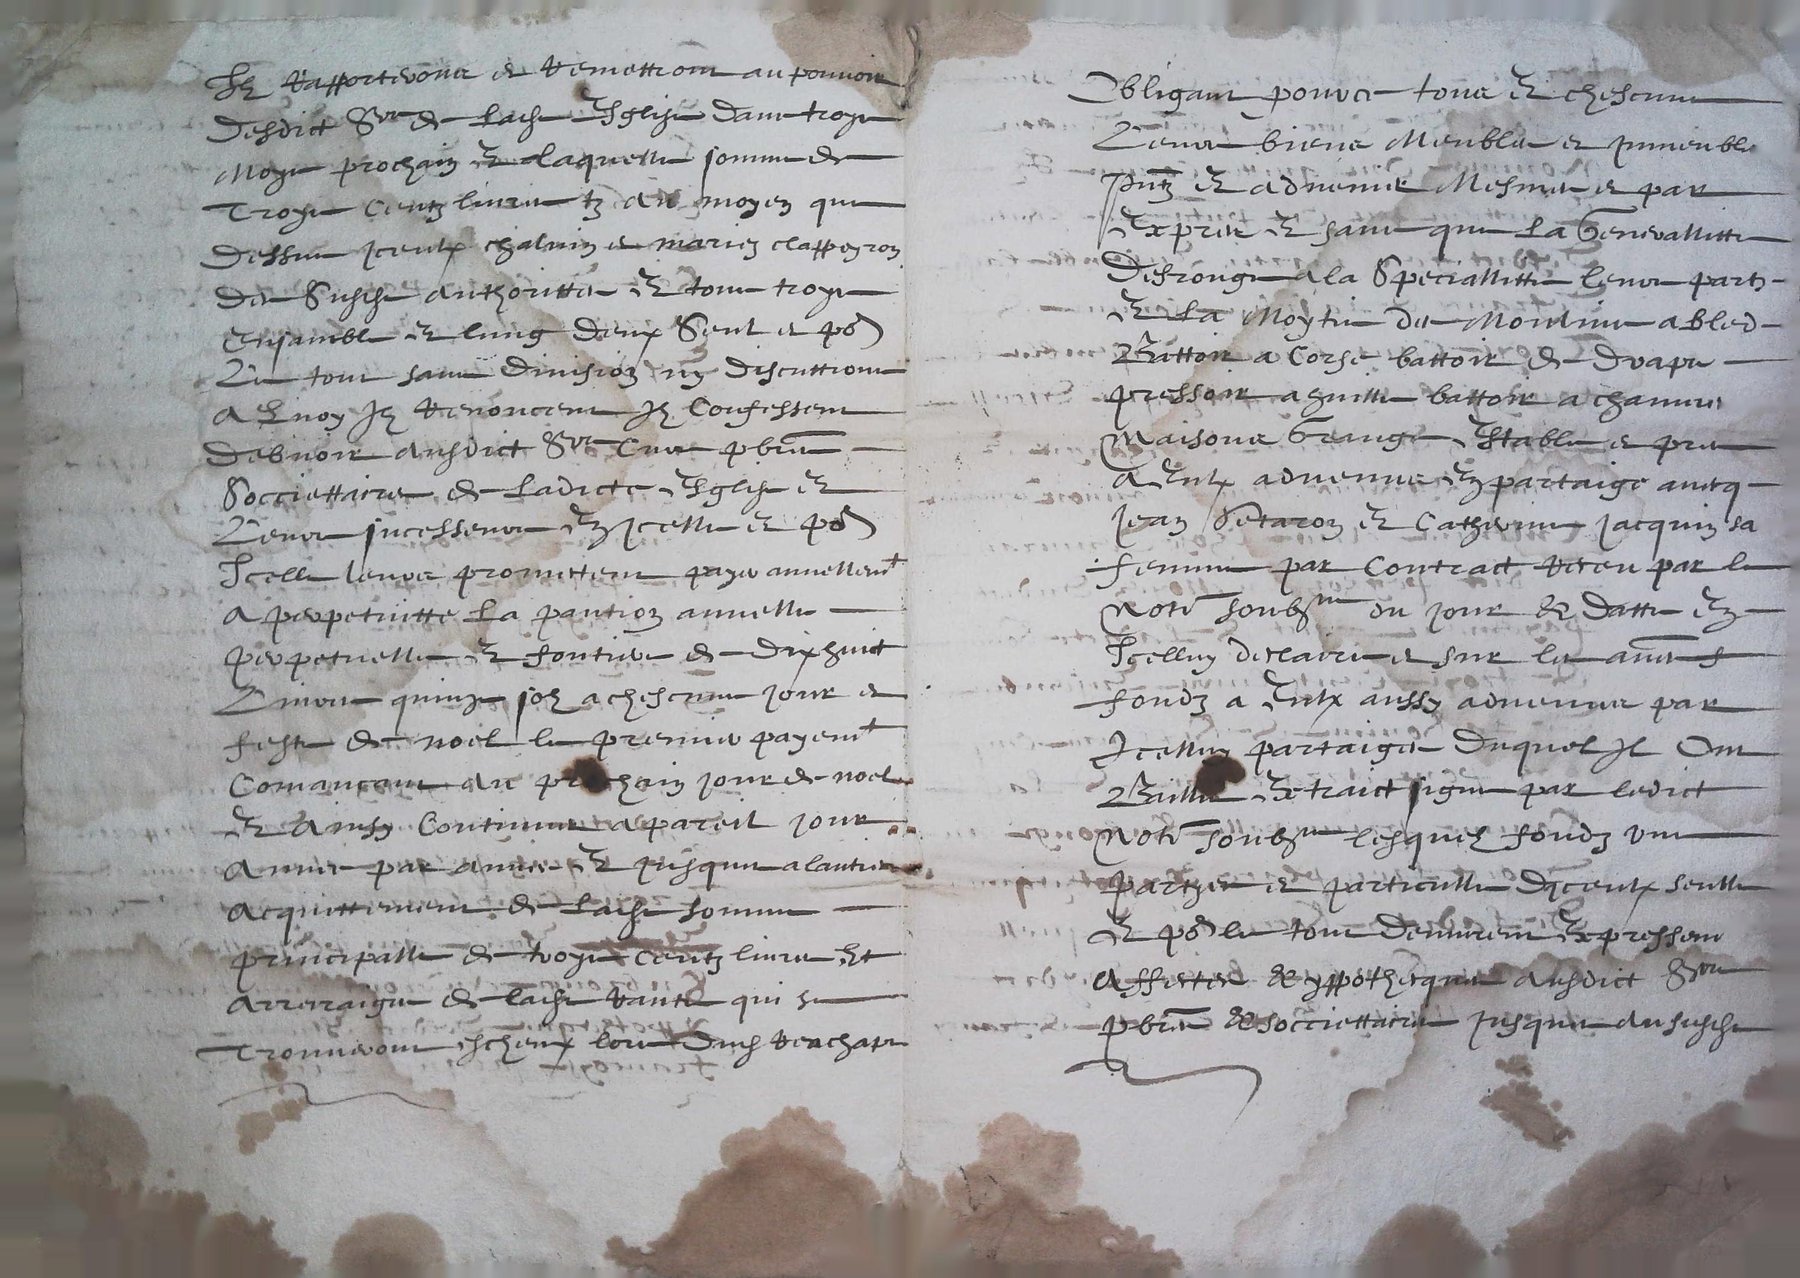 Ilz rapporteront et remettront au pouvoir
desdict Srs de lade Esglise dans troys
moys prochain Et laquelle somme de
Troys Centz livres tz au moyen que
dessus Iceulx chalvin et marie clappeyron
de Susdte authorittee Et tous troys
Ensemble Et lung deulx Seul et po
Le tout sans division ny discuttions
A Quoy Ilz renoncent Ilz Confessent
debvoir ausdict Srs Cure pbres
Socciettaires de Ladicte Esglise Et
Leurs successeurs En Icelle et po
Icelle leurs promettent payer annellemt
A perpetuitte La pantion annelle
perpetuelle Et fontiere de dixhuict
Livres quinze solz a chescung jour et
feste de noel le premier payemt
Comancant au prochain jour de noel
Et Ainsy Continuer a pareil jour
Annee par annee Et jusques a lantier
Acquittement de lade somme
principalle de troys Centz livres Et
Arreraiges de lade rante qui se
Trouveront escheux lors dud reachapt
Obligant pource tous Et chescung
Leurs biens Meubles et Immeubles
pntz Et advenir Mesmes et par
Expres Et sans que La Generallitte
desroge a la Speciallitte leurs part
Et La Moytie de Moulins a bled
Battoir a Corse battoir de draps
pressoir a huille battoir a chanvre
Maisons Grange Estable et pres
A Eulx advenus En partaige avecq
Jean Setaron Et Catherine Jacquin sa
femme par Contract receu par le
Notre soubsne du jour Et datte En
Icelluy declaire et sur les autres
fondz a Eulx aussy advenus par
Icelluy partaige duquel Il Ont
Baille Extraict signe par ledict
Notre soubsne lesquelz fondz une
partyes et particulles diceulx seulle
Et po le tout demurent Expressem
Affectes Et yppothecques ausdict Srs
pbres Et socciettaires jusques au susde